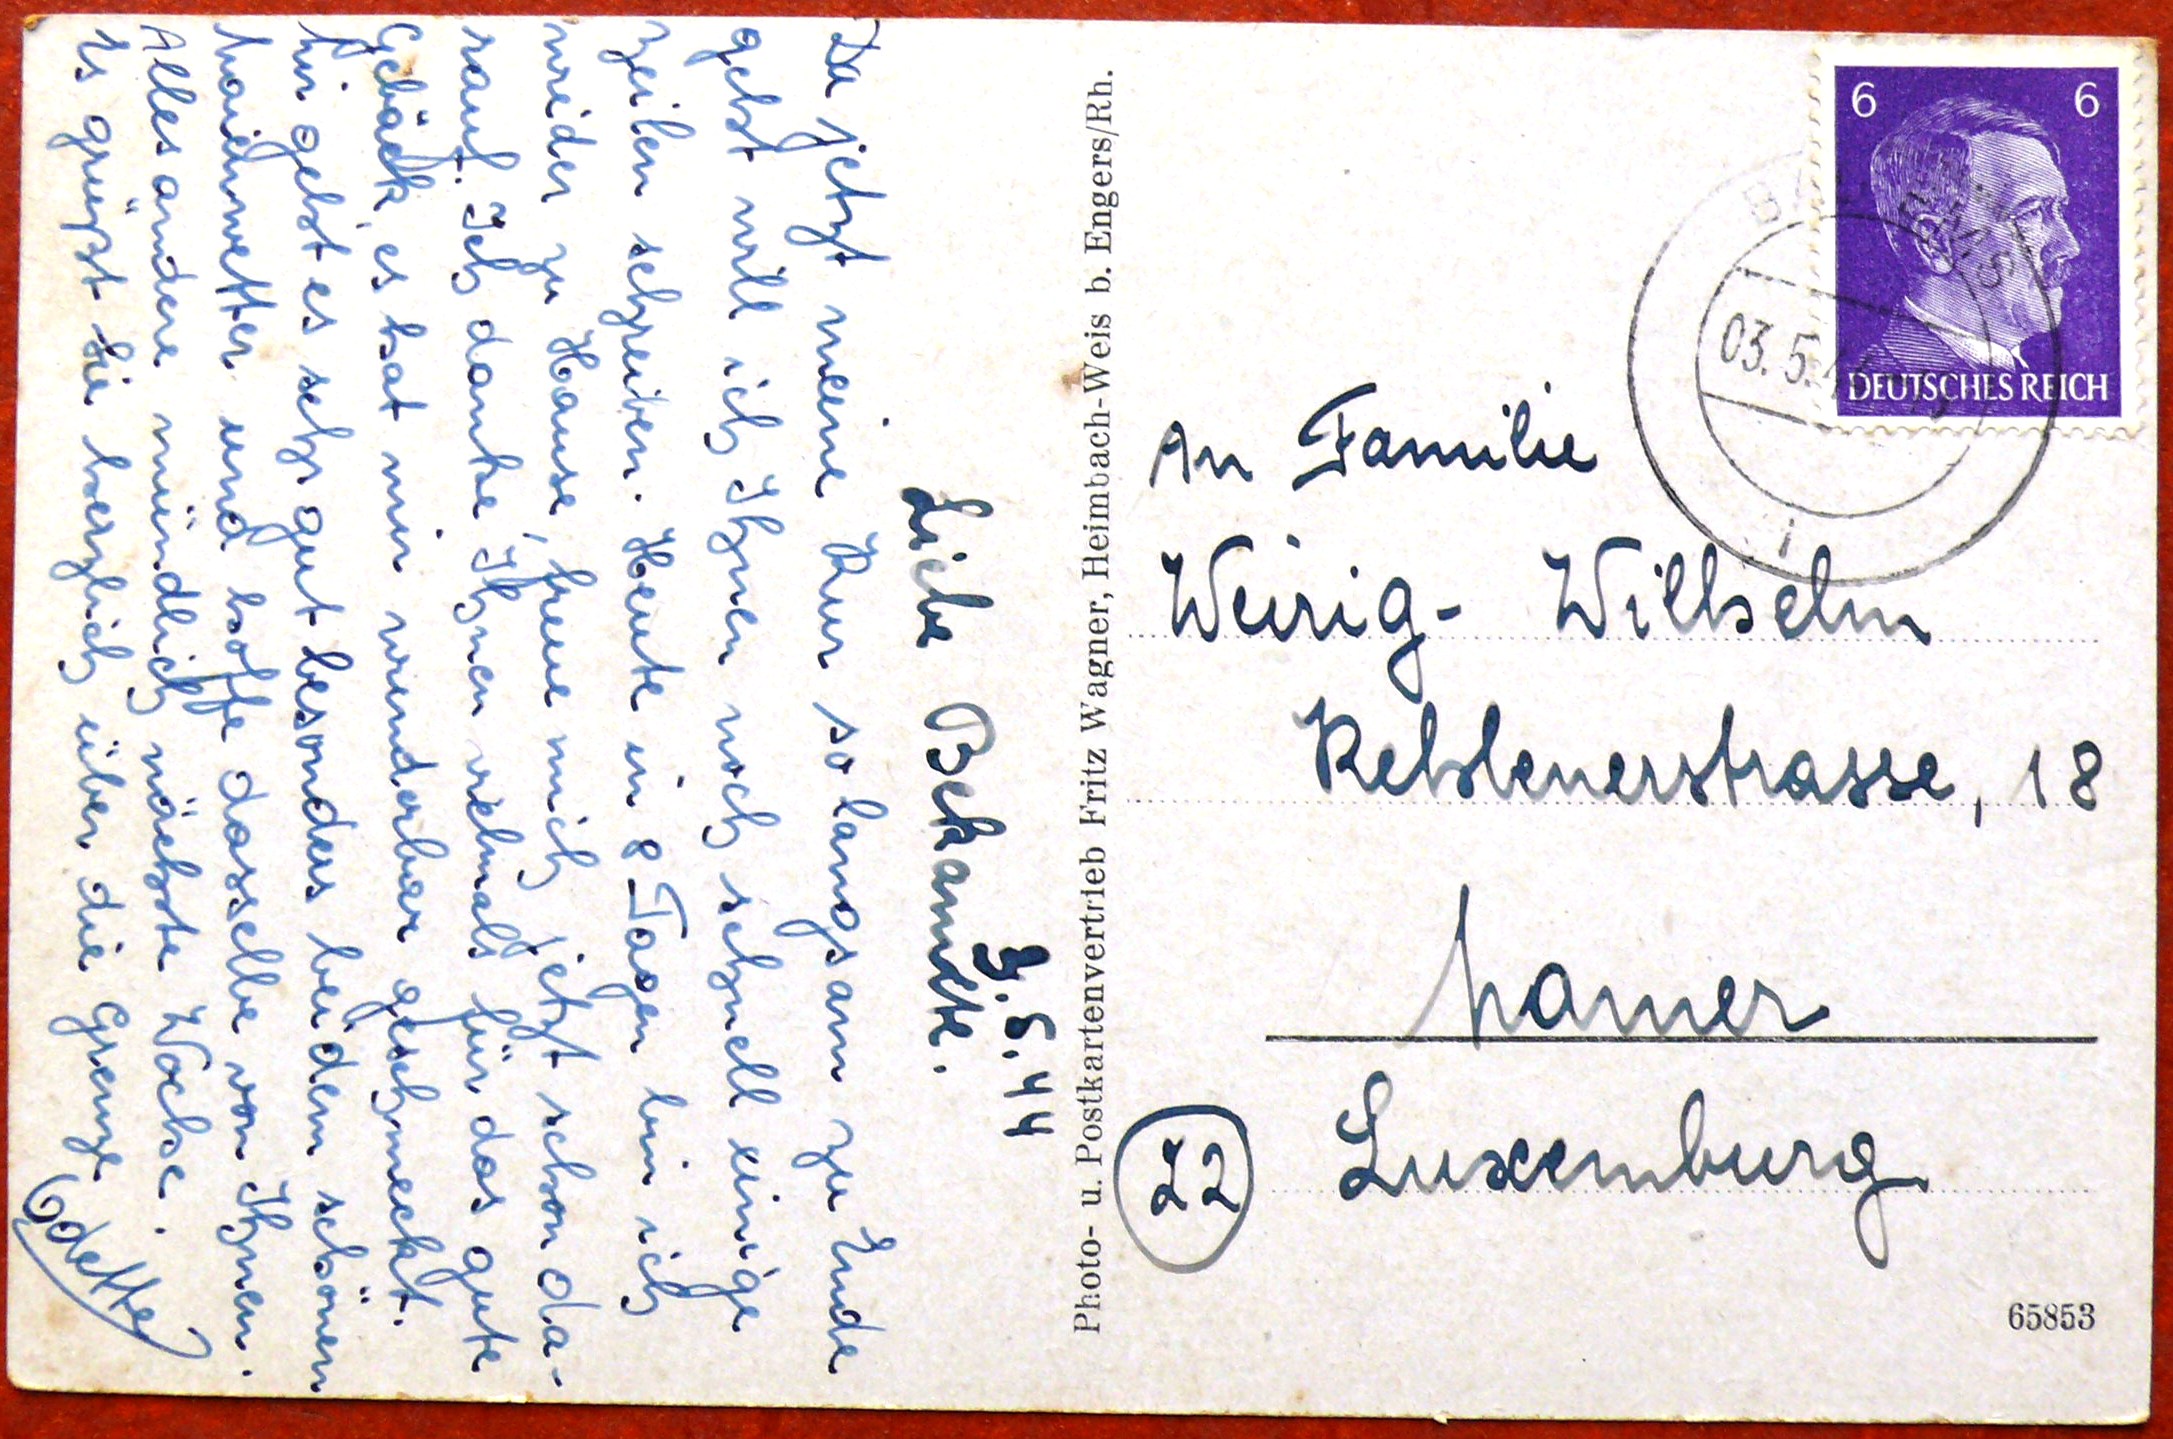 3.5.44
Liebe Bekannte.
Da jetzt meine Kur so langsam zu Ende
geht will ich Ihnen noch schnell einige
Zeilen schreiben. Heute in 8 Tagen bin ich
wieder zu Hause, freue mich jetzt schon da-
rauf. Ich danke Ihnen vielmals für das gute
Gebäck, es hat mir wunderbar geschmeckt.
Mir geht es sehr gut besonders bei dem schönen
Maienwetter und hoffe dasselbe von Ihnen.
Alles andere mündlich nächste Woche.
Es grüsst Sie herzlich über die Grenze
Odette
Photo- u. Postkartenvertrieb Fritz Wagner, Heimbach-Weis b. Engers/Rh.
6 6
DEUTSCHES REICH
BAD EMS
03.5.44
1
An Familie
Weirig- Wilhelm
Kehlenerstrasse, 18
Mamer
22 Luxemburg
65853